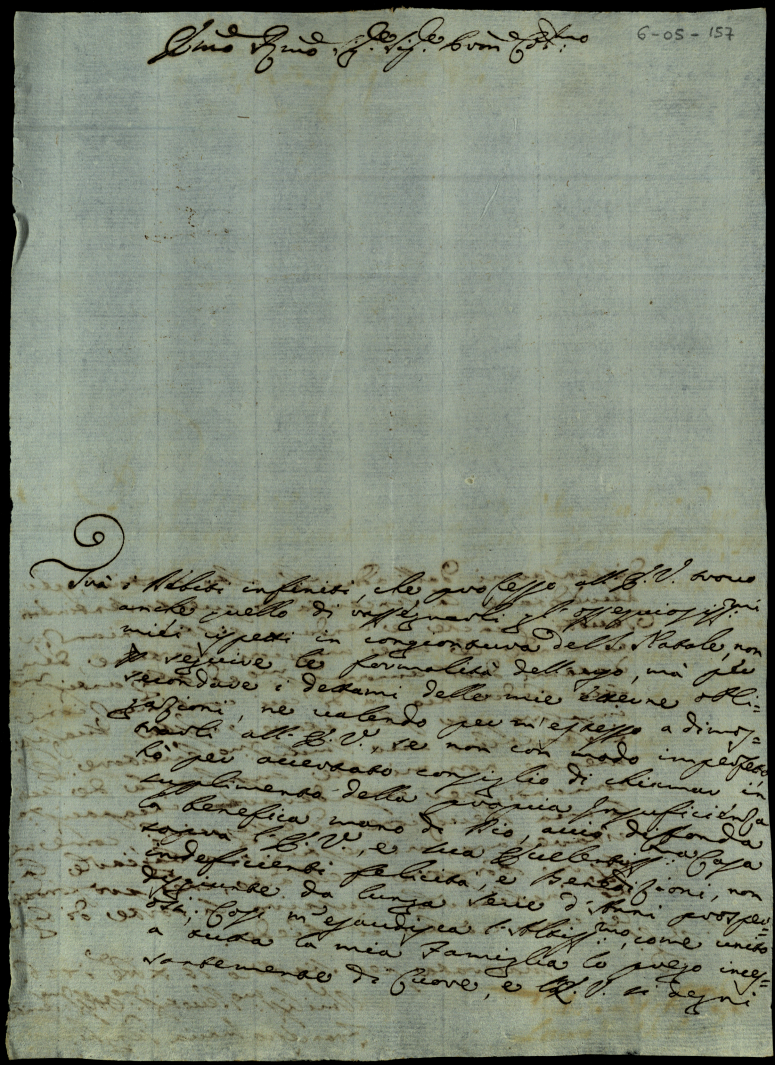 6-05-157
Illmo Rmo Sig.re Sig.re Pron Colmo
Trà i debiti infiniti, che professo all' E. V. trovo
anche quello di rassegnarli gl' ossequiosiss.mi
miei rispetti in congiontura del S. Natale, non
p seguire le formalità dell' uso, mà per
secondare i dettami delle mie eterne obli=
gazioni, ne valendo per m'estesso a dimos=
trarli all' E. V., se non con modo imperfetto
hò per accertato consiglio di chiamar in
supplimento della propria Insuficienza
la benefica mano di Dio, acciò diffonda
sopra l' E. V., e sua Eccellentiss.ma Casa
indeficienti felicità, e Benedizioni, non
disgiunte da lunga serie d'Anni prospe=
osi; Così m'esaudisca l'Altiss.mo, come unito
a tutta la mia Famiglia lo prego inces=
santemente di Cuore, e l' E. V. si degni